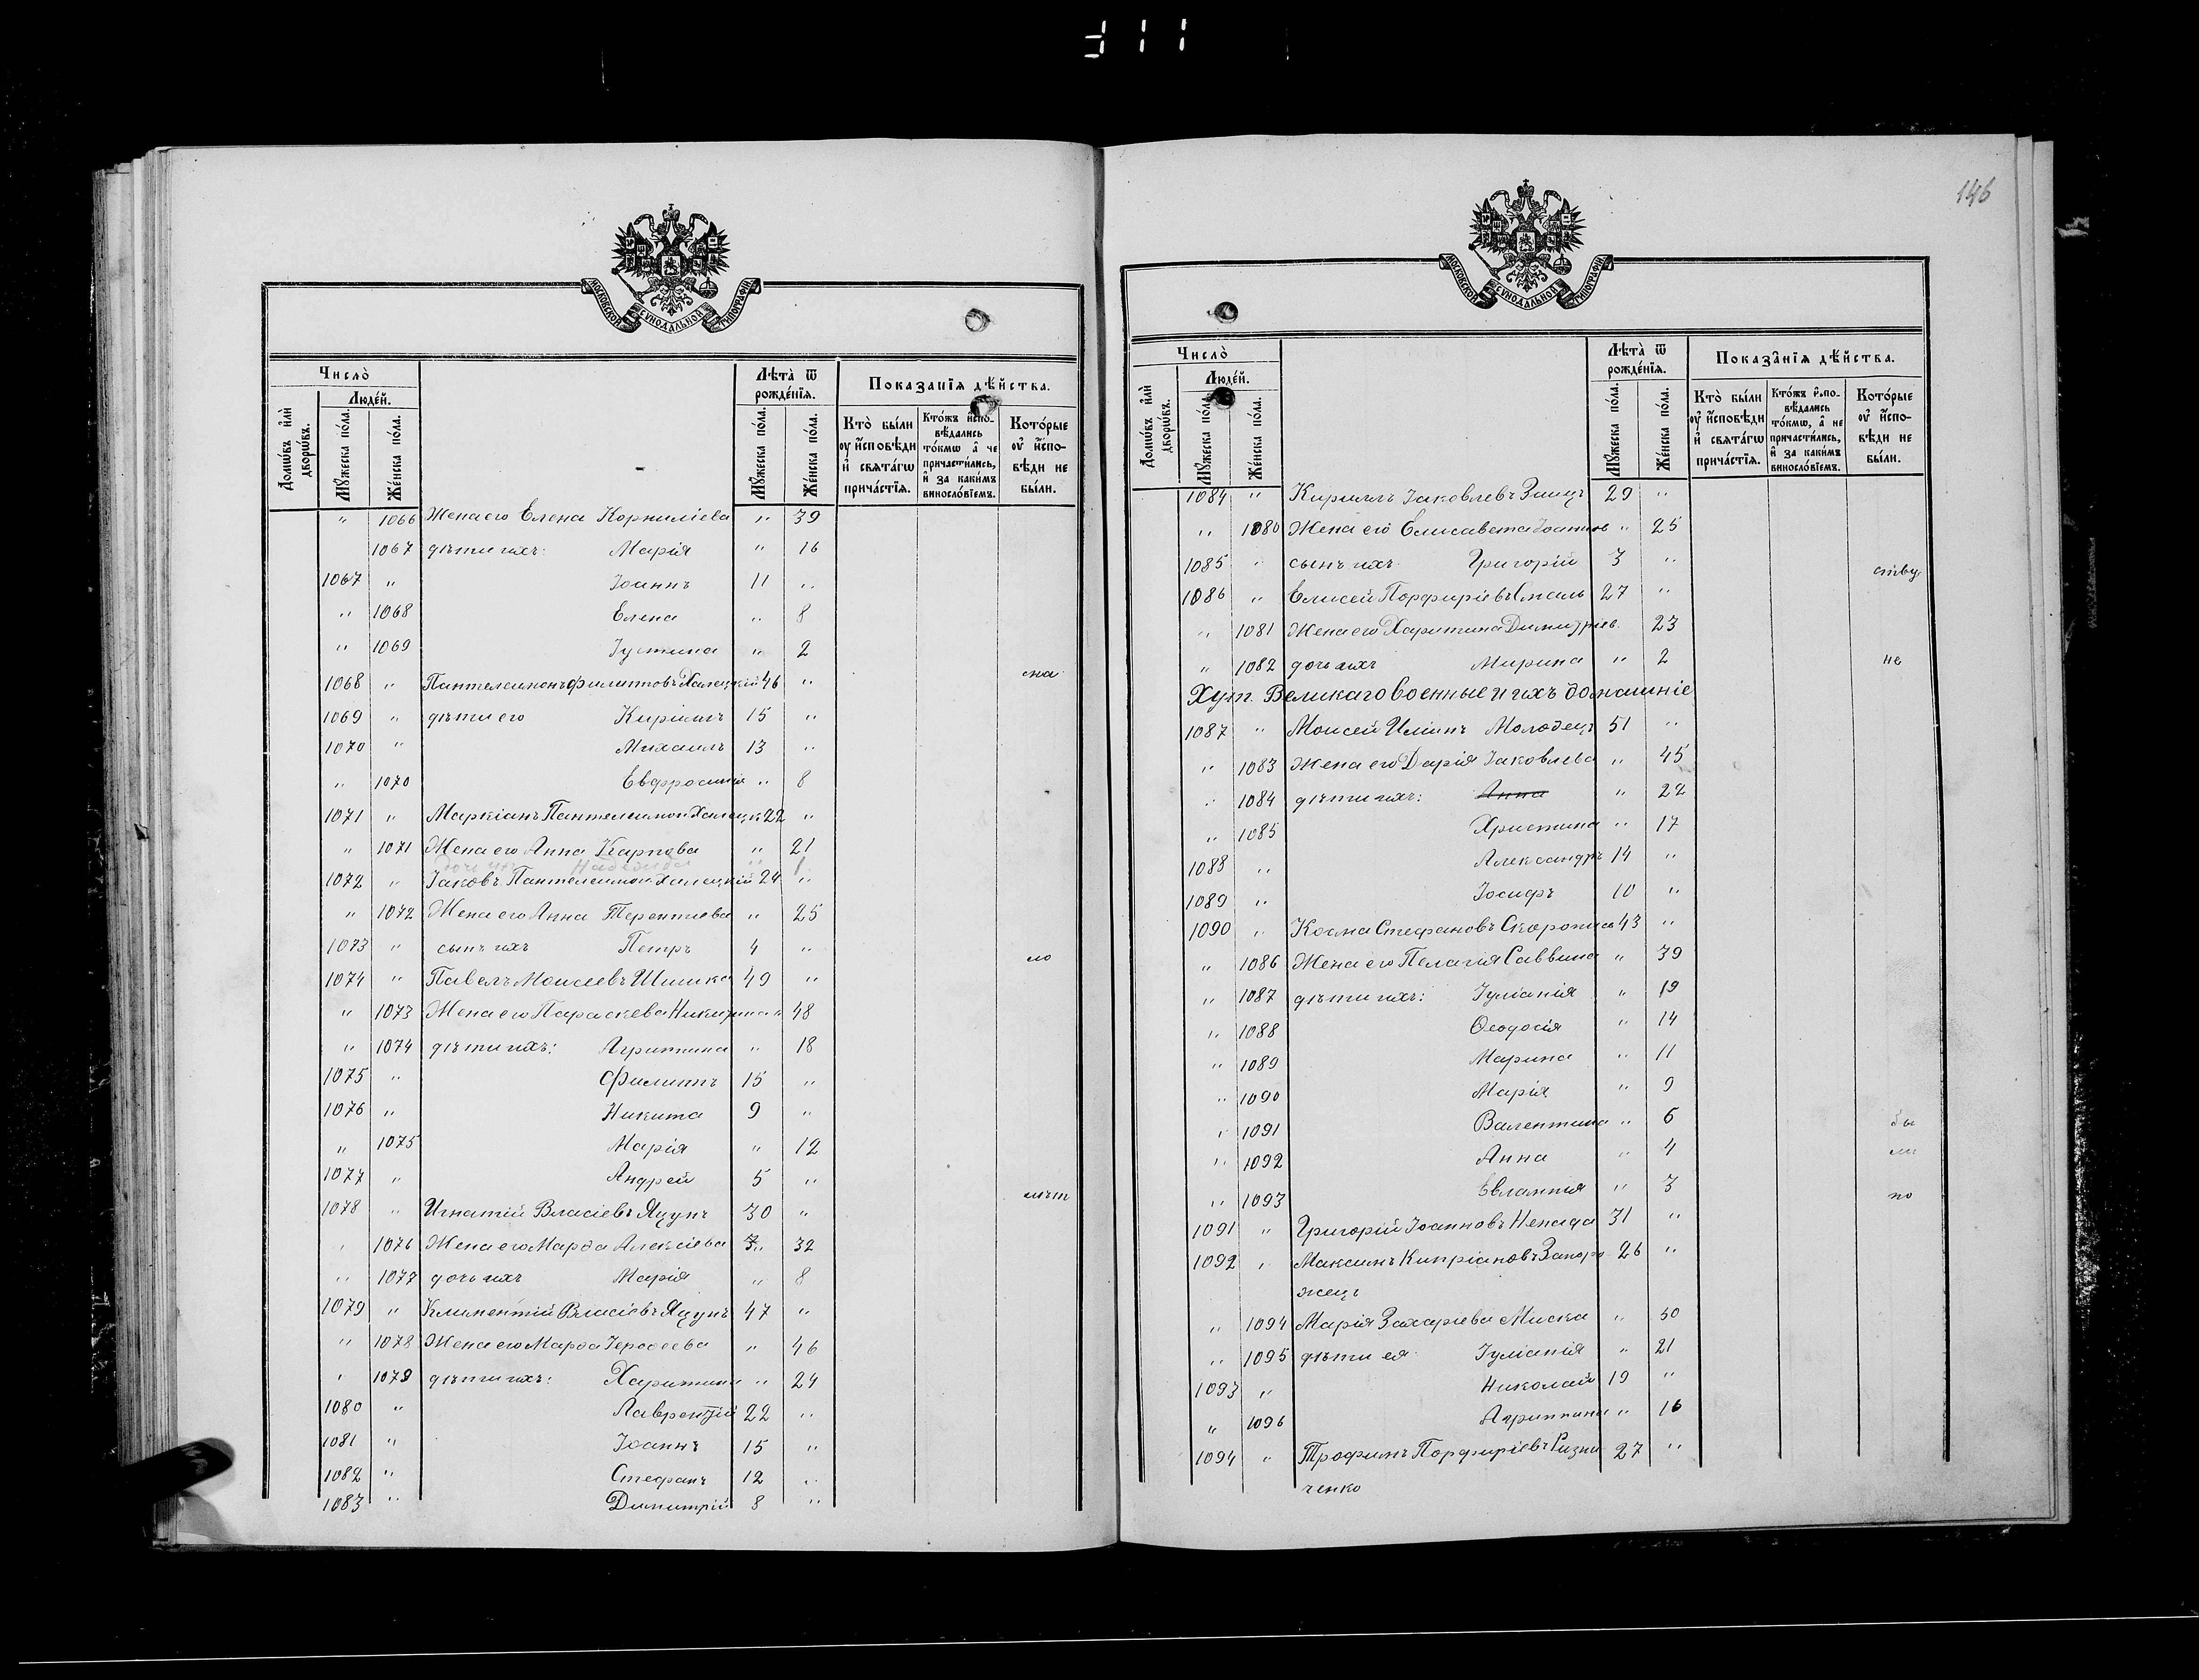 146
МОСКОВСКОЙ СѴНОДАЛЬНОЙ ТИПОГРАФІИ
Число̀
Домѡ́въ и҆лѝ дворѡ́въ.
Люде́й.
Мꙋ́жеска по́ла.
Же́нска по́ла.
Лѣ́та ѿ рожде́нїѧ.
Мꙋ́жеска по́ла.
Же́нска по́ла.
Показа́нїѧ дѣ́йства.
Кто̀ бы́ли ᲂу҆ и҆́сповѣди и҆ свѧта́гѡ прича́стїѧ.
Кто́жъ и҆спо-вѣ́дались то́кмѡ а҆ не причасти́лись, и҆ за каки́мъ винослόвїемъ.
Кото́рые ᲂу҆ и҆́спо-вѣди не бы́ли.
" 1066 Жена его Елена Корниліева " 39
1067 дѣти ихъ: Марія " 16
1067 " Іоаннъ 11 "
" 1068 Елена " 8
" 1069 Іустина " 2
1068 " Пантелеимонъ Филипповъ Халецкій 46 " сна
1069 " дѣти его Кириллъ 15 "
1070 " Михаилъ 13 "
" 1070 Евфросинія " 8
1071 " Маркіанъ Пантелеимон Халецк 22 "
" 1071 Жена его Анна Карпова " 21
дочь ихъ Надежда " 1
1072 " Іаковъ Пантелеимон Халецкій 24 "
" 1072 Жена его Анна Терентиева " 25
1073 " сынъ ихъ Петръ 4 "
ло
1074 " Павелъ Моисеевъ Шишка 49 "
" 1073 Жена его Параскева Никитина " 48
" 1074 дѣти ихъ: Агриппина " 18
1075 " Филиппъ 15 "
1076 " Никита 9 "
" 1075 Марія " 12
1077 " Андрей 5 "
лѣт
1078 " Игнатій Власіевъ Яцунъ 30 "
" 1076 Жена его Марфа Алексіева " 32
" 1077 дочь ихъ Марія " 8
1079 " Климентій Власіевъ Яцунъ 47 "
" 1078 Жена его Марфа Іерофеева " 46
" 1079 дѣти ихъ: Харитина " 24
1080 " Лаврентій 22 "
1081 " Іоаннъ 15 "
1082 " Стефанъ 12 "
1083 " Димитрій 8 "
МОСКОВСКОЙ СѴНОДАЛЬНОЙ ТИПОГРАФІИ
Число̀
Домѡ́въ и҆лѝ дворѡ́въ.
Люде́й.
Мꙋ́жеска по́ла.
Же́нска по́ла.
Лѣ́та ѿ рожде́нїѧ.
Мꙋ́жеска по́ла.
Же́нска по́ла.
Показа́нїѧ дѣ́йства.
Кто̀ бы́ли ᲂу҆ и҆́сповѣди и҆ свѧта́гѡ прича́стїѧ.
Кто́жъ и҆спо-вѣ́дались то́кмѡ, а҆ не причасти́лись, и҆ за каки́мъ винослόвїемъ.
Кото́рые ᲂу҆ и҆́спо-вѣди не бы́ли.
1084 " Кириллъ Іаковлевъ Заицъ 29 "
" 1080 Жена его Елисавета Іоаннов " 25
1085 " сынъ ихъ Григорій 3 "
ству
1086 " Елисей Порфиріевъ 27 "
" 1081 Жена его Харитина Димитріев. 23
" 1082 дочь ихъ Марина " 2 не
Хут. Великаго военные и ихъ домашніе
1087 " Моисей Иліинъ Молодецъ 51 "
" 1083 Жена его Дарія Іаковлева " 45
" 1084 дѣти ихъ: Анна " 22
" 1085 Христина " 17
1088 " Александръ 14 "
1089 " Іосифъ 10 "
1090 " Косма Стефановъ Скоропис 43 "
" 1086 Жена его Пелагія Саввина " 39
" 1087 дѣти ихъ: Іуліанія " 19
" 1088 Ѳеодосія " 14
" 1089 Марина " 11
" 1090 Марія " 9
" 1091 Валентина " 6 бы
" 1092 Анна " 4 ли
" 1093 Евлампія " 3 по
1091 " Григорій Іоанновъ Ненада 31 "
1092 " Максимъ Кипріановъ Запоро- 26 "
жецъ
" 1094 Марія Захаріева Миска " 50
" 1095 дѣти ея Іуліанія " 21
1093 " Николай 19 "
" 1096 Агриппина " 16
1094 " Трофимъ Порфиріевъ Ризни 27 "
ченко